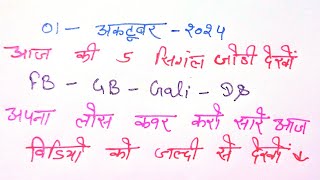 01 - अक्टूबर - २०२४
आज की 5 सिगंल जोडी देखों
FB - GB - Gali - DS
अपना लोस कवर करो सारे आज
विडियो को जल्दी से देखों